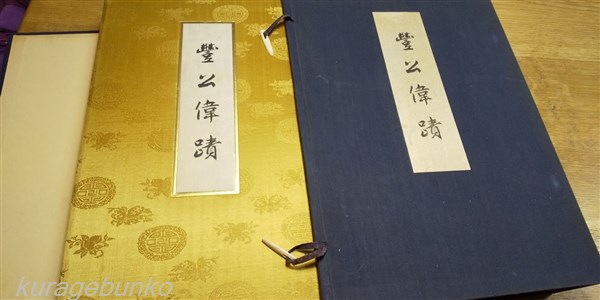 豐公偉蹟
豐公偉蹟
kuragebunko